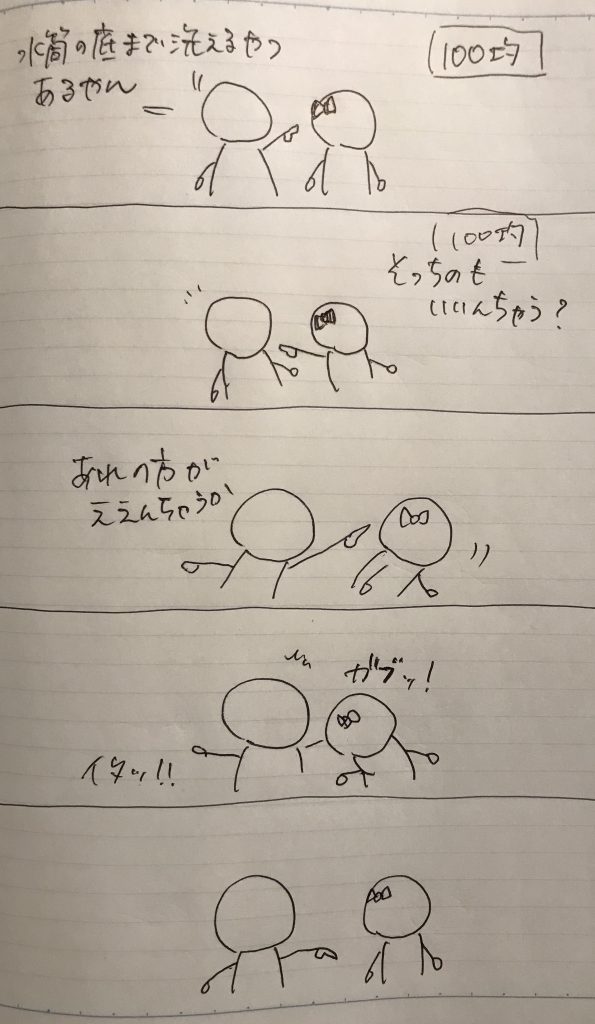 水筒の底まで洗えるやつ
あるやん
100均
100均
そっちのも
いいんちゃう?
あれの方が
ええんちゃうか
ガブッ!
イタッ!!